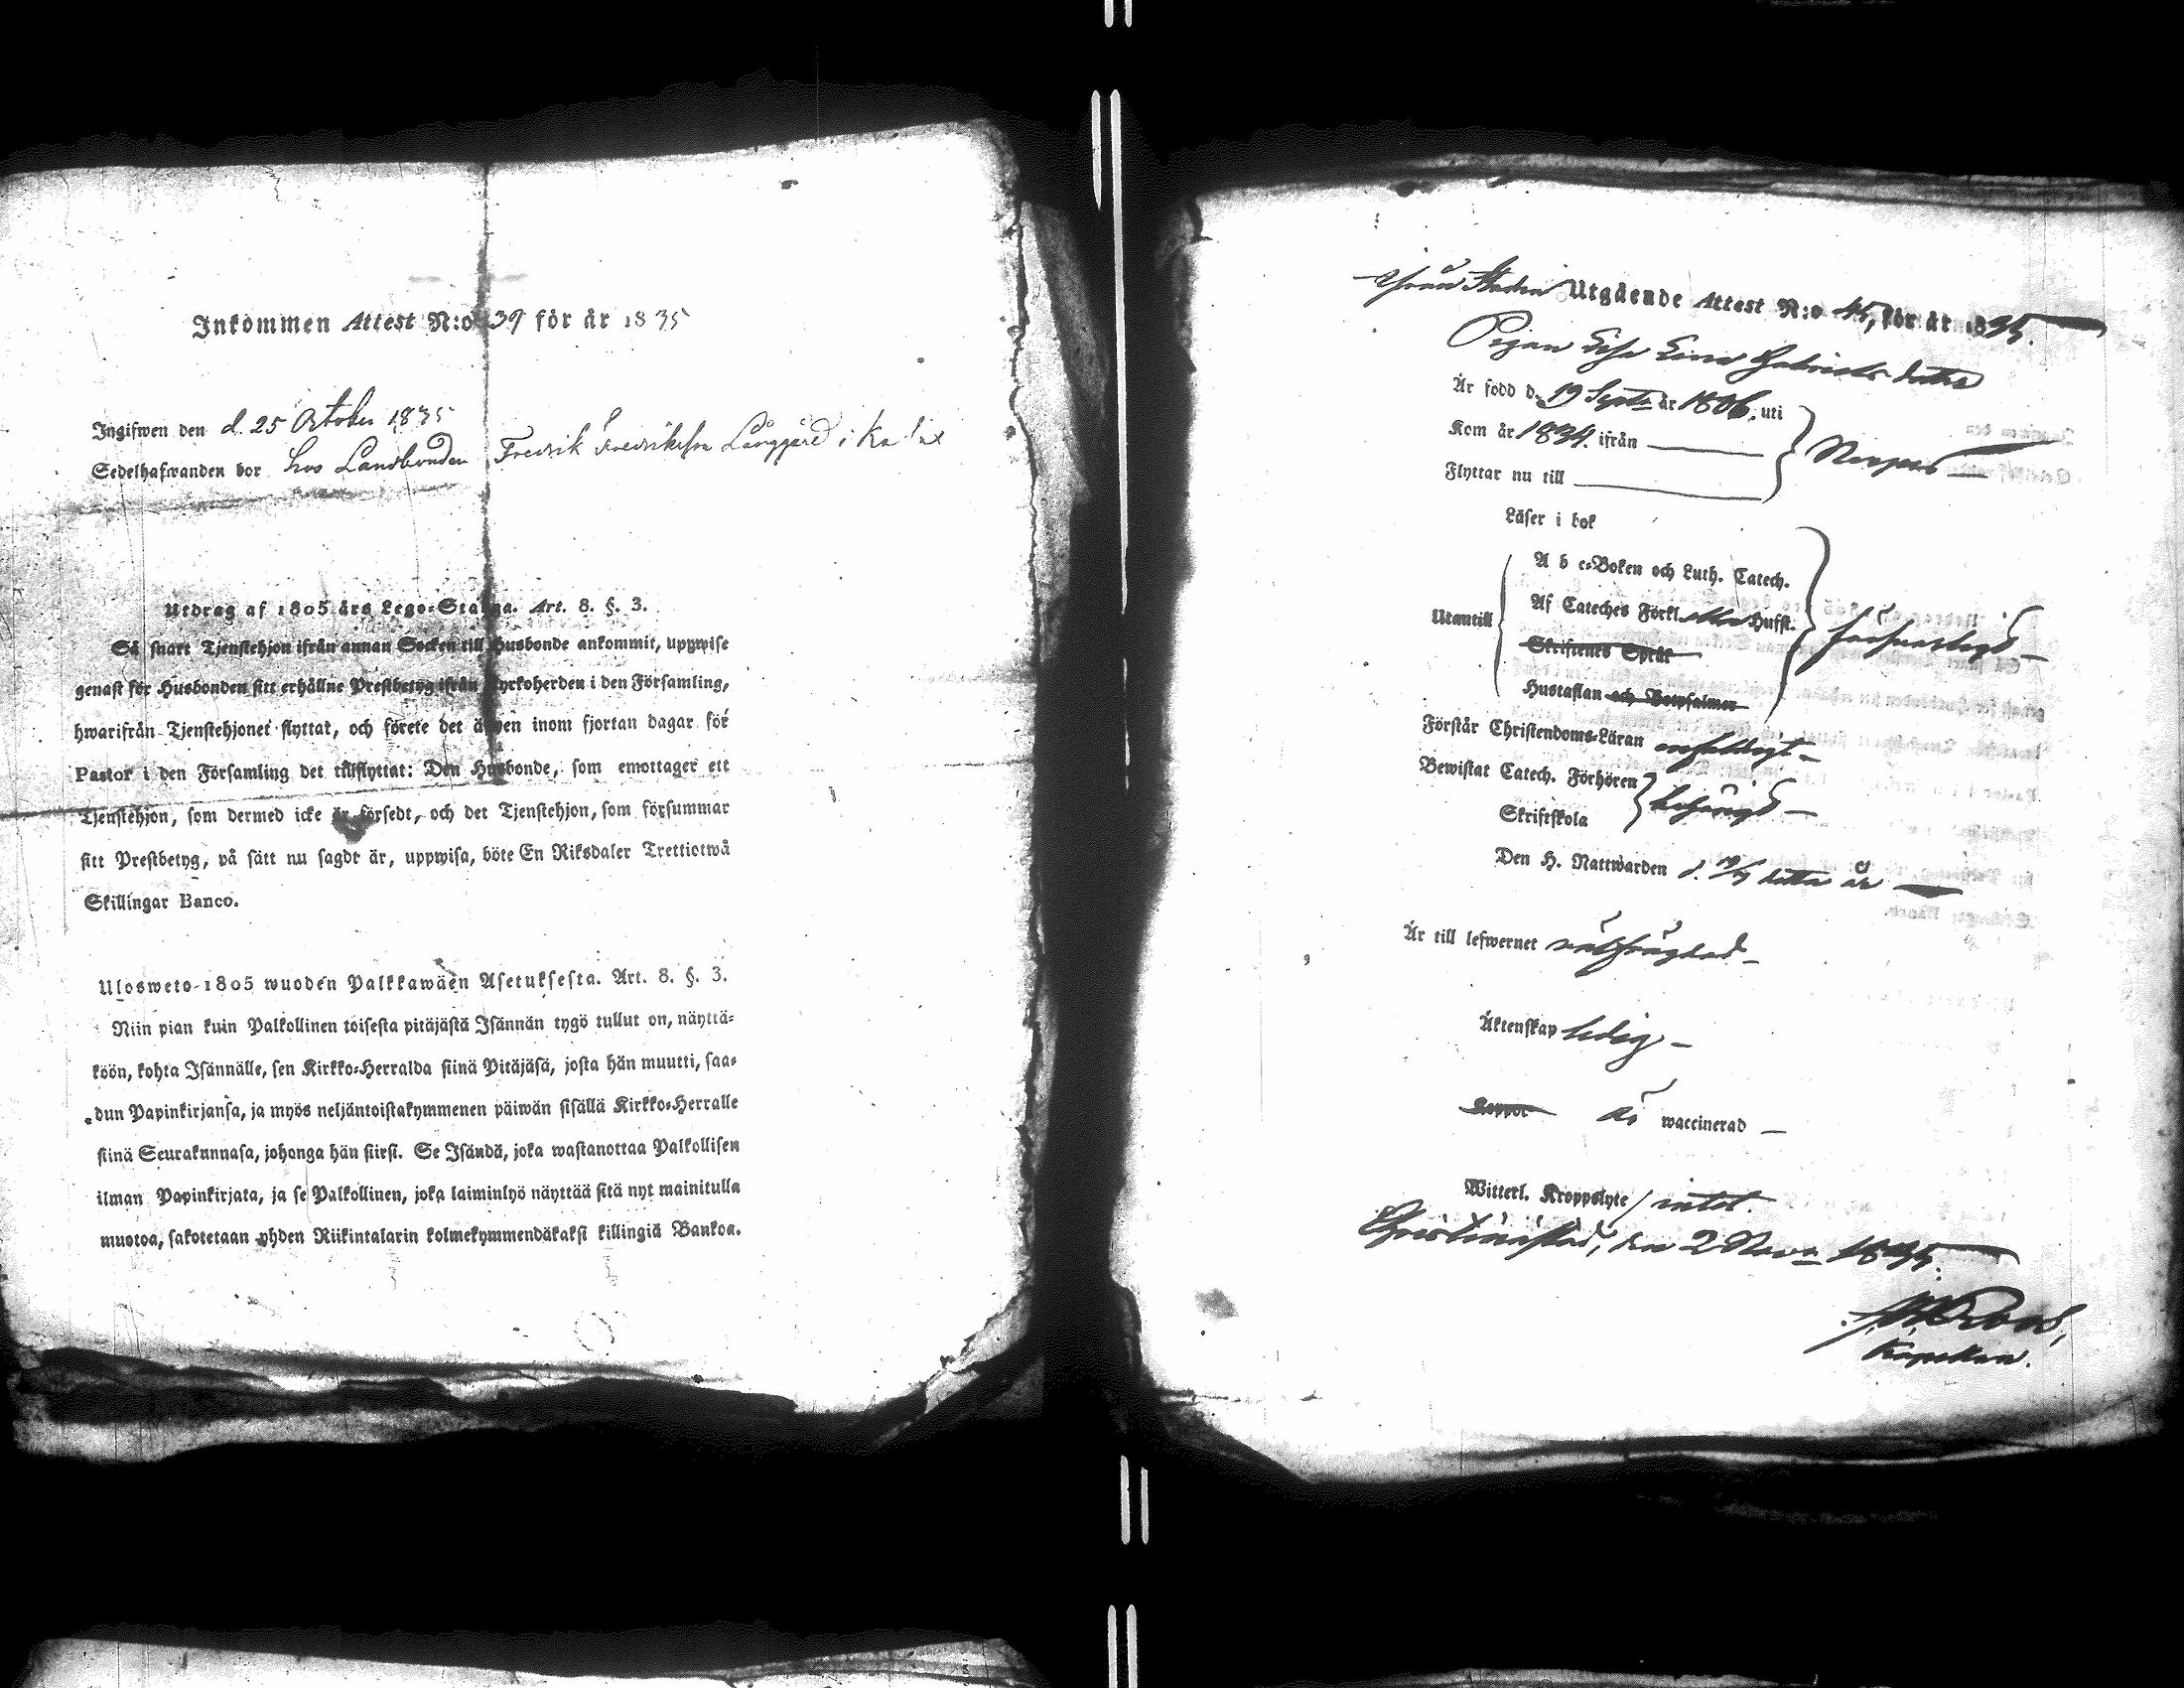 Inkommen Attest N:o 39 för år 1835
Ingifwen den d. 25 October 1835
Sedelhafwanden bor hos Landbonden Fredrik Fredriksson Långgård i Kalax
Utdrag af 1805 års Lego-Stadga. Art. 8. §. 3.
Så snart Tjenstehjon ifrån annan Socken till Husbonde ankommit, uppwise
genast för Husbonden sitt erhållne Prestbetyg ifrån Kyrkoherden i den Församling,
hwarifrån Tjenstehjonet flyttat, och förete det äfwen inom fjortan dagar för
Pastor i den Församling det tillflyttat: Den Husbonde, som emottager ett
Tjenstehjon, som dermed icke är försedt, och det Tjenstehjon, som försummar
sitt Prestbetyg, på sätt nu sagdt är, uppwisa, böte En Riksdaler Trettiotwå
Skillingar Banco.
Ulosweto 1805 wuoden Palkkawäen Asetuksesta. Art. 8. §. 3.
Niin pian kuin Palkollinen toisesta pitäjästä Isännän tygö tullut on, näyttä-
köön, kohta Isännälle, sen Kirkko-Herralda siinä Pitäjäsä, josta hän muutti, saa-
dun Papinkirjansa, ja myös neljäntoistakymmenen päiwän sisällä Kirkko-Herralle
siinä Seurakunnasa, johonga hän siirsi. Se Isändä, joka wastanottaa Palkollisen
ilman Papinkirjata, ja se Palkollinen, joka laiminlyö näyttää sitä nyt mainitulla
muotoa, sakotetaan yhden Riikintalarin kolmekymmendäkaksi killingiä Bankoa.
från Staden Utgående Attest N:o 45, för år 1835.
Pigan Lisa Lena Gabriels dotter
Är född d. 19 Sept. år 1806. uti
Kom år 1834. ifrån
Flyttar nu till
Nerpes
Läser i bok
A b c-Boken och Luth. Catech.
Utantill
Af Cateches Förkl. eller Hufst.
Skriftenes Språk
Hustaflan och Botpsalmer
försvarligt
Förstår Christendoms-Läran enfaldigt
Bewistat Catech. Förhören
Skriftskola
behörigt
Den H. Nattwarden d. 19/7 detta år
Är till lefwernet välfrägdad
Äktenskap ledig
Koppor är waccinerad
Witterl. Kroppslyte intet.
Christinestad, den 2 Nov. 1835.
Kapellan.